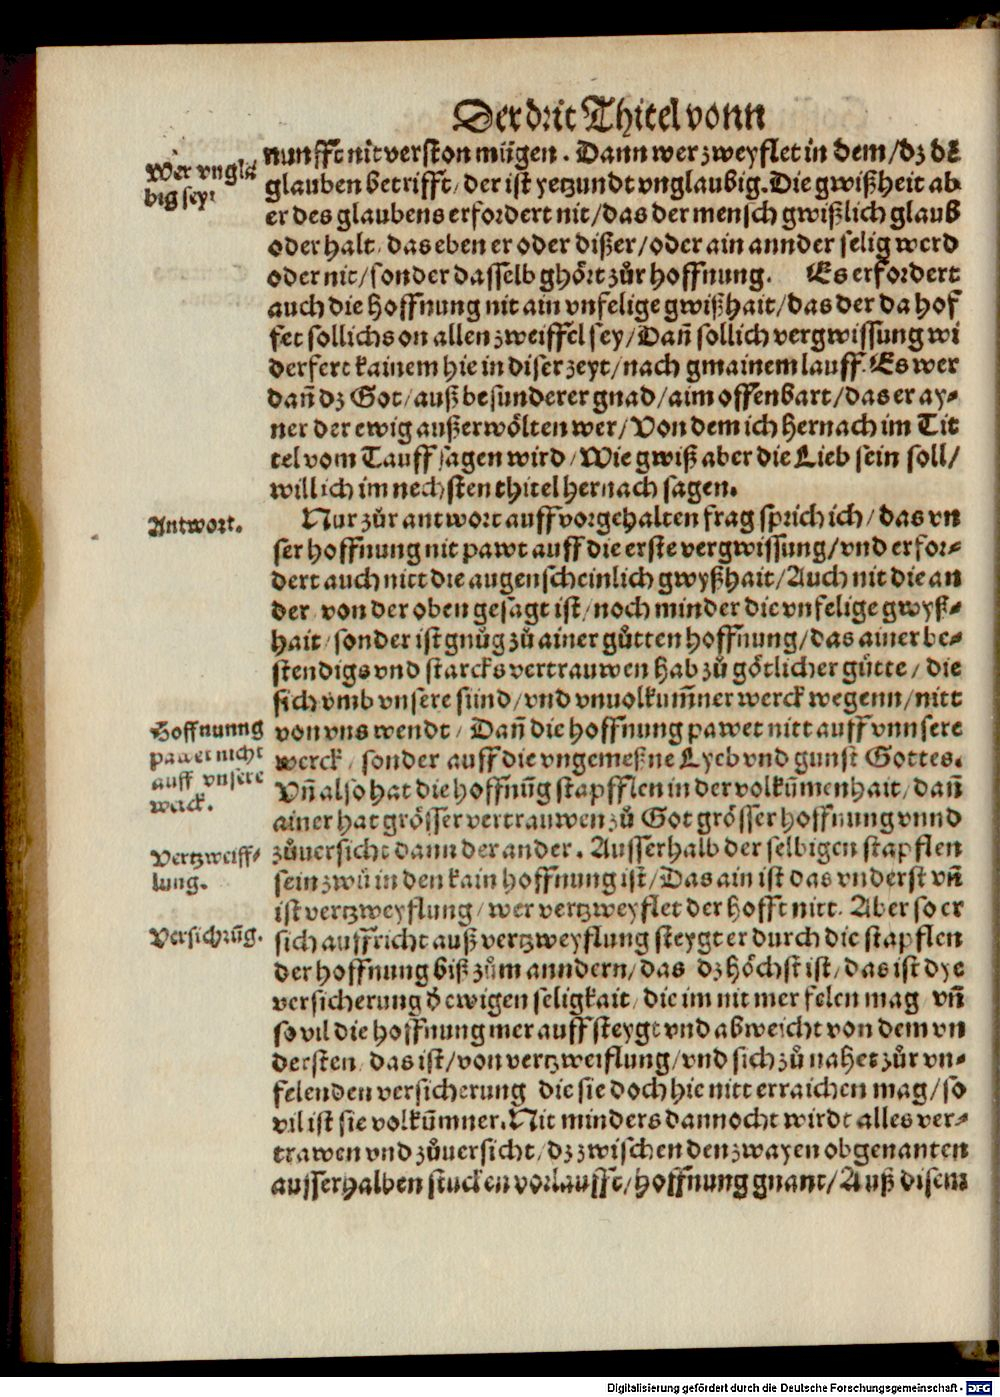 Der drit Thitel vonn
nunfft nit verston mügen. Dann wer zweyflet in dem/dz dē
glauben betrifft/ der ist yetzundt vnglaubig. Die gwißheit ab
er des glaubens erfordert nit/das der mensch gwißlich glaub
oder halt/ das eben er oder dißer/oder ain annder selig werd
oder nit/sonder dasselb ghört zůr hoffnung. Es erfordert
auch die hoffnung nit ain vnfelige gwißhait/das der da hof
fet sollichs on allen zweiffel sey/ Dañ sollich vergwissung wi
derfert kainem hie in diser zeyt/nach gmainem lauff. Es wer
dañ dz Got/auß besunderer gnad/aim offenbart/das er ay⸗
ner der ewig außerwölten wer/ Von dem ich hernach im Tit
tel vom Tauff sagen wird/ Wie gwiß aber die Lieb sein soll/
will ich im nechsten thitel hernach sagen.
Nur zůr antwort auff vorgehalten frag sprich ich/das vn
ser hoffnung nit pawt auff die erste vergwissung/vnd erfor⸗
dert auch nitt die augenscheinlich gwyßhait/Auch nit die an
der/ von der oben gesagt ist/noch minder die vnfelige gwyß⸗
hait/ sonder ist gnůg zů ainer gůtten hoffnung/das ainer be⸗
stendigs vnd starcks vertrauwen hab zů götlicher gütte/ die
sich vmb vnsere sünd/vnd vnuolkum̃ner werck wegenn/nitt
von vns wendt/ Dañ die hoffnung pawet nitt auff vnnsere
werck/ sonder auff die vngemeßne Lyeb vnd gunst Gottes.
Vñ also hat die hoffnūg stapfflen in der volkūmenhait/ dañ
ainer hat grösser vertrauwen zů Got grösser hoffnung vnnd
zůuersicht dann der ander. Ausserhalb der selbigen stapflen
sein zwů in den kain hoffnung ist/Das ain ist das vnderst vñ
ist vertzweyflung/wer vertzweyflet der hofft nitt. Aber so er
sich auffricht auß vertzweyflung steygt er durch die stapflen
der hoffnung biß zům anndern/das dz höchst ist/das ist dye
versicherung d̄ ewigen seligkait/ die im nit mer felen mag vñ
so vil die hoffnung mer auffsteygt vnd abweicht von dem vn
dersten/ das ist/von vertzweiflung/vnd sich zů nahet zůr vn⸗
felenden versicherung die sie doch hie nitt erraichen mag/so
vil ist sie volkūmner. Nit minders dannocht wirdt alles ver⸗
trawen vnd zůuersicht/dz zwischen den zwayen obgenanten
ausserhalben stucken vorlaufft/hoffnung gnant/Auß disem
Wer vnglā
big sey.
Antwort.
Hoffnunng
pawet nicht
auff vnsere
werck.
Vertzweiff⸗
lung.
Versichrūg.
Digitalisierung gefördert durch die Deutsche Forschungsgemeinschaft - DFG